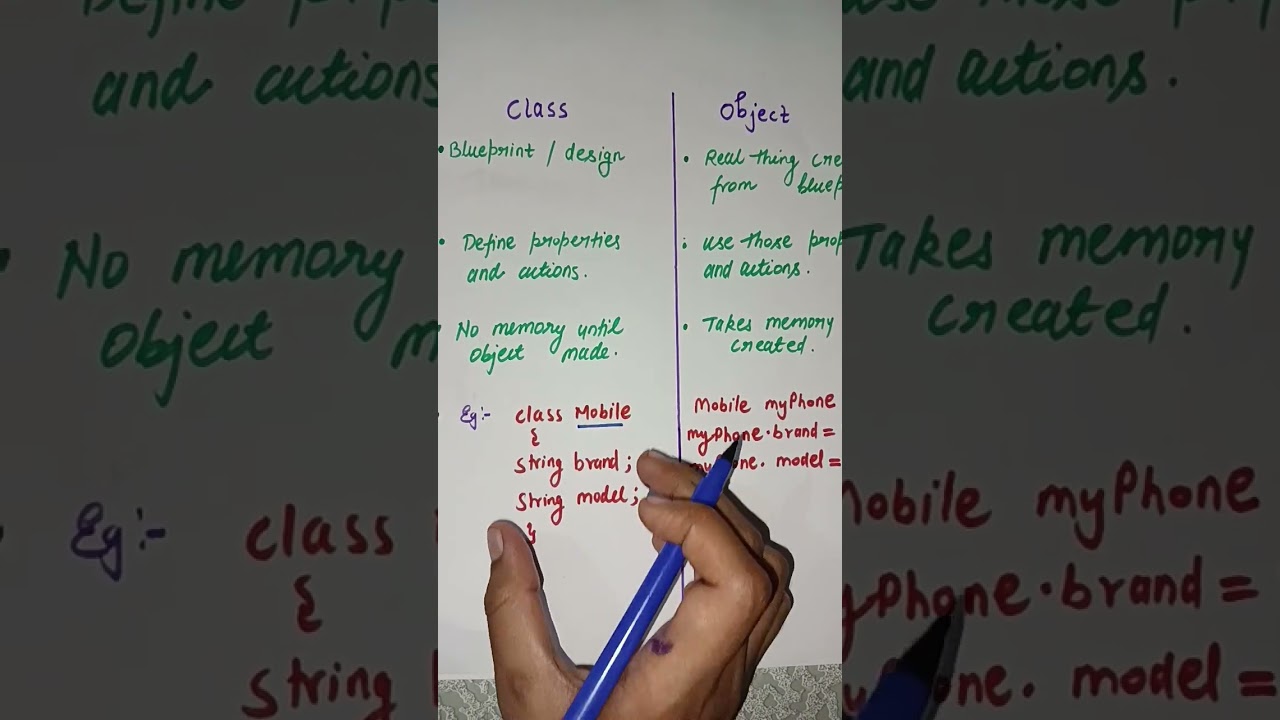 Class
• Blueprint / design
• Define properties
and actions.
No memory until
object made.
Eg:- class Mobile
{
string brand ;
string model ;
}
Object
• Real thing
from
• use those
and actions.
• Takes memory
created.
Mobile myPhone
myPhone.brand =
model =